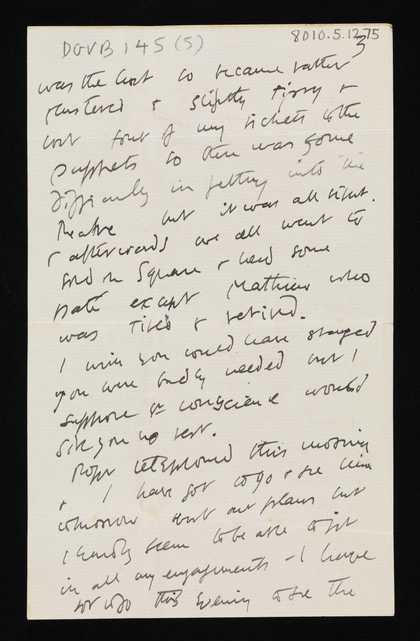 DGVB 145 (5)
8010.5.1275
3
was the host so became rather
flustered & slightly tipsy &
lost four of my tickets to the
puppets so there was some
difficulty in getting into the
Theatre but it was all right.
& afterwards we all went to
Square & had some
paté except Mathieu who
was tired & retired.
I wish you could have stayed
you were badly needed but I
suppose yr conscience would
give you no rest.
Roger telephoned this morning
& I have got to go & see him
tomorrow about our plans but
I hardly seem to be able to fit
in all my engagements – I have
got to go this evening to see the